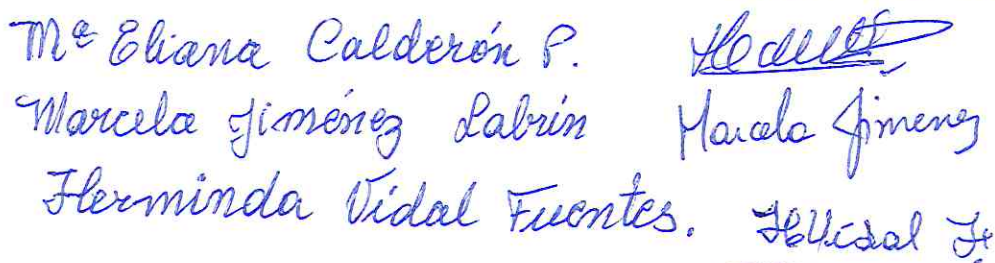 Mª Eliana Calderón P.
Marcela Jiménez Labrín Marcela Jimenez
Herminda Vidal Fuentes. HVidal F